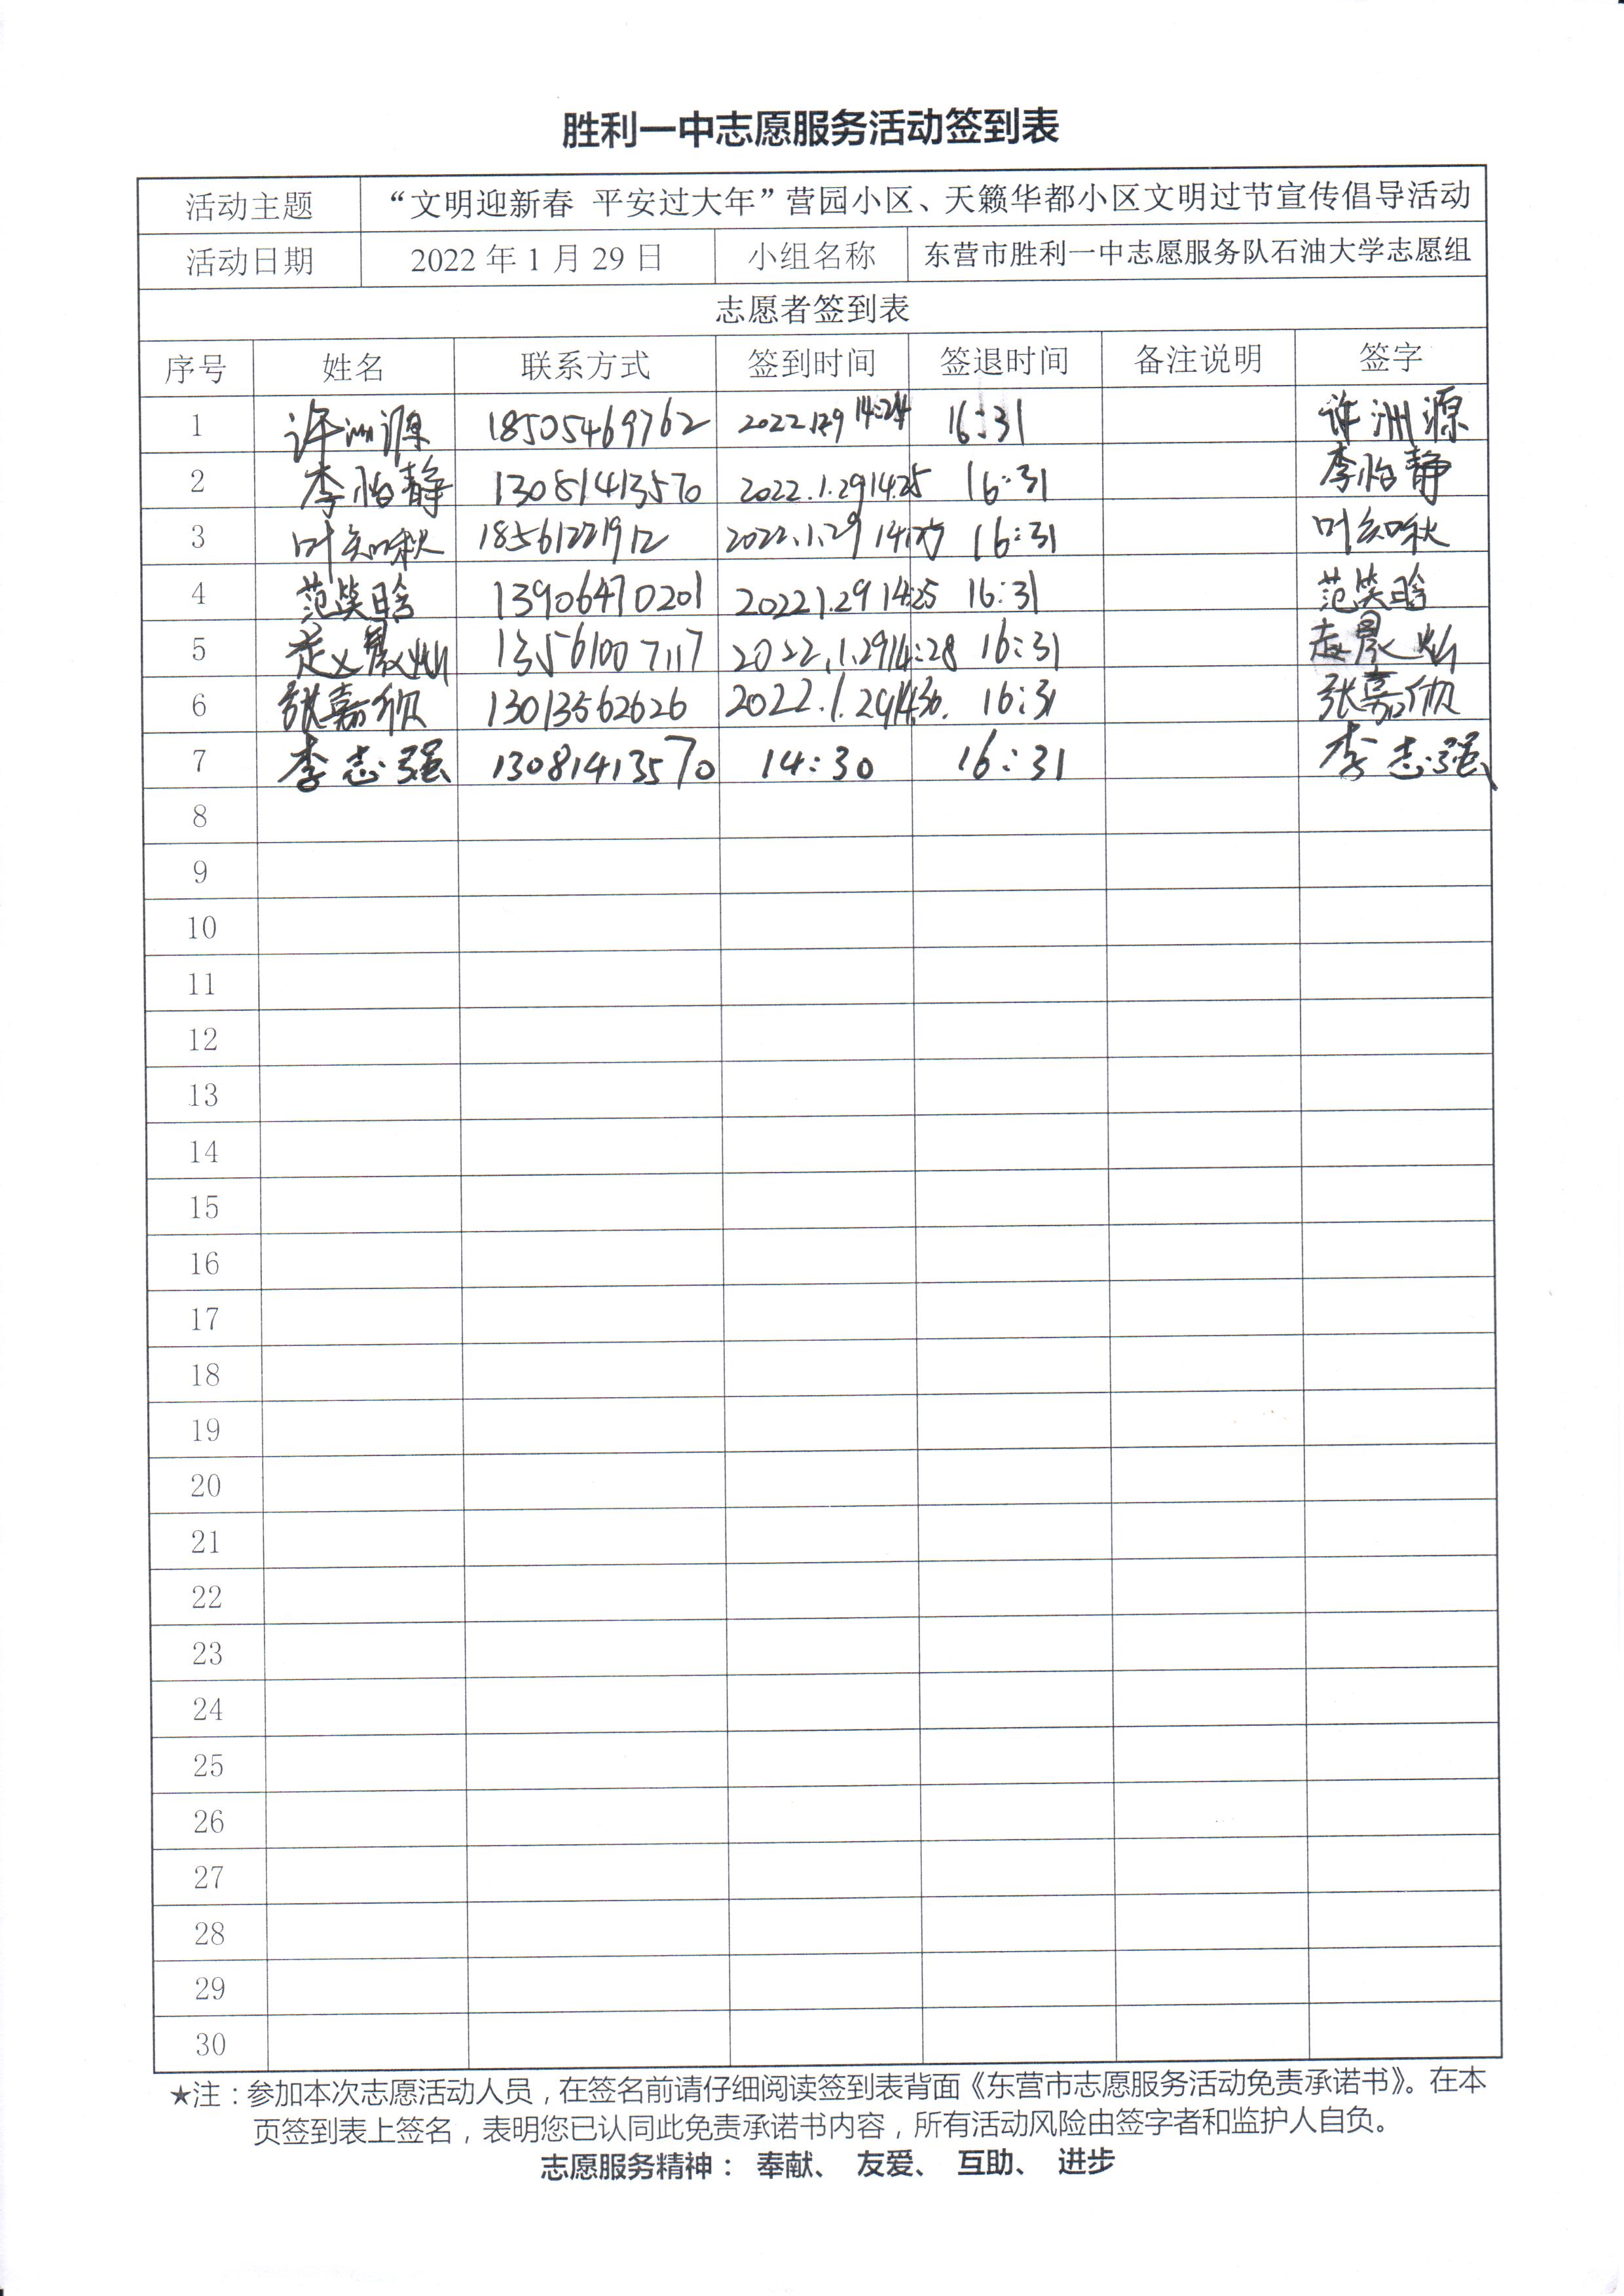 胜利一中志愿服务活动签到表
活动主题 “文明迎新春 平安过大年”营园小区、天籁华都小区文明过节宣传倡导活动
活动日期 2022年1月29日 小组名称 东营市胜利一中志愿服务队石油大学志愿组
志愿者签到表
序号 姓名 联系方式 签到时间 签退时间 备注说明 签字
1 许洲源 18505469762 2022.1.29 14:24 16:31 许洲源
2 李怡静 13081413570 2022.1.29 14:25 16:31 李怡静
3 叶知秋 18561221912 2022.1.29 16:31 叶知秋
4 范笑晗 13906470201 2022 1.29 14:25 16:31 范笑晗
5 赵晨灿 13561007117 2022.1.29 14:28 16:31 赵晨灿
6 张嘉欣 13013562626 2022.1.29 14:30. 16:31 张嘉欣
7 李志强 13081413570 14:30 16:31 李志强
8
9
10
11
12
13
14
15
16
17
18
19
20
21
22
23
24
25
26
27
28
29
30
★注：参加本次志愿活动人员，在签名前请仔细阅读签到表背面《东营市志愿服务活动免责承诺书》。在本
页签到表上签名，表明您已认同此免责承诺书内容，所有活动风险由签字者和监护人自负。
志愿服务精神： 奉献、 友爱、 互助、 进步